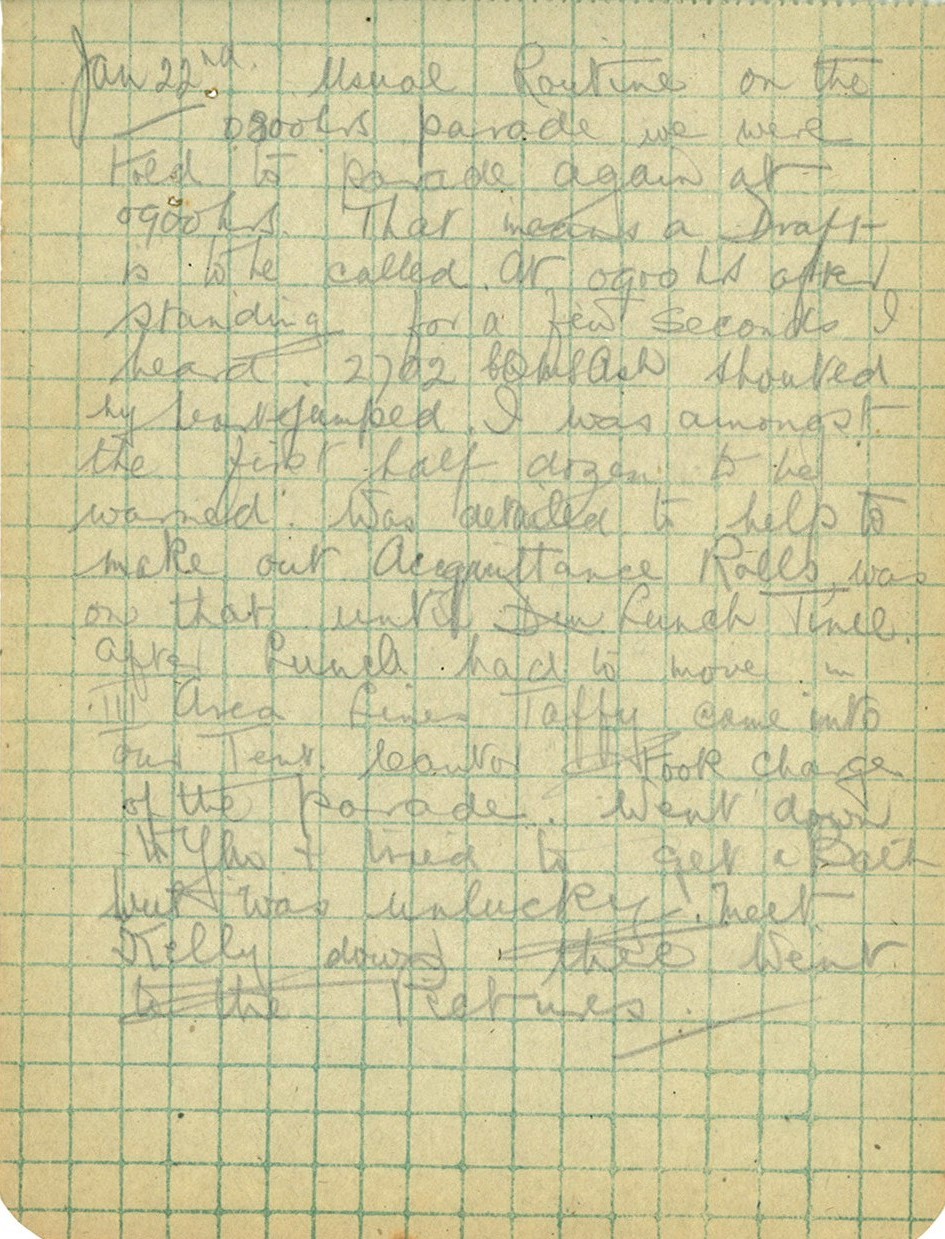 Jan 22nd. Usual Routine on the
0800hrs parade we were
told to parade again at
0900hrs. That means a Draft
is to be called. At 0900hrs after
standing for a few seconds I
heard. 2792 Ash shouted
my heart jumped. I was amongst
the first half dozen to be
warned. Was detailed to help to
make out Acquittance Rolls, was
on that until Din Lunch Time.
After Lunch had to move in
III Area Lines Taffy came into
our Tent. took charge
of the parade. Went down
to & tried to get a Bath
but was unlucky. Meet
Kelly down there Went
to the Pictures.